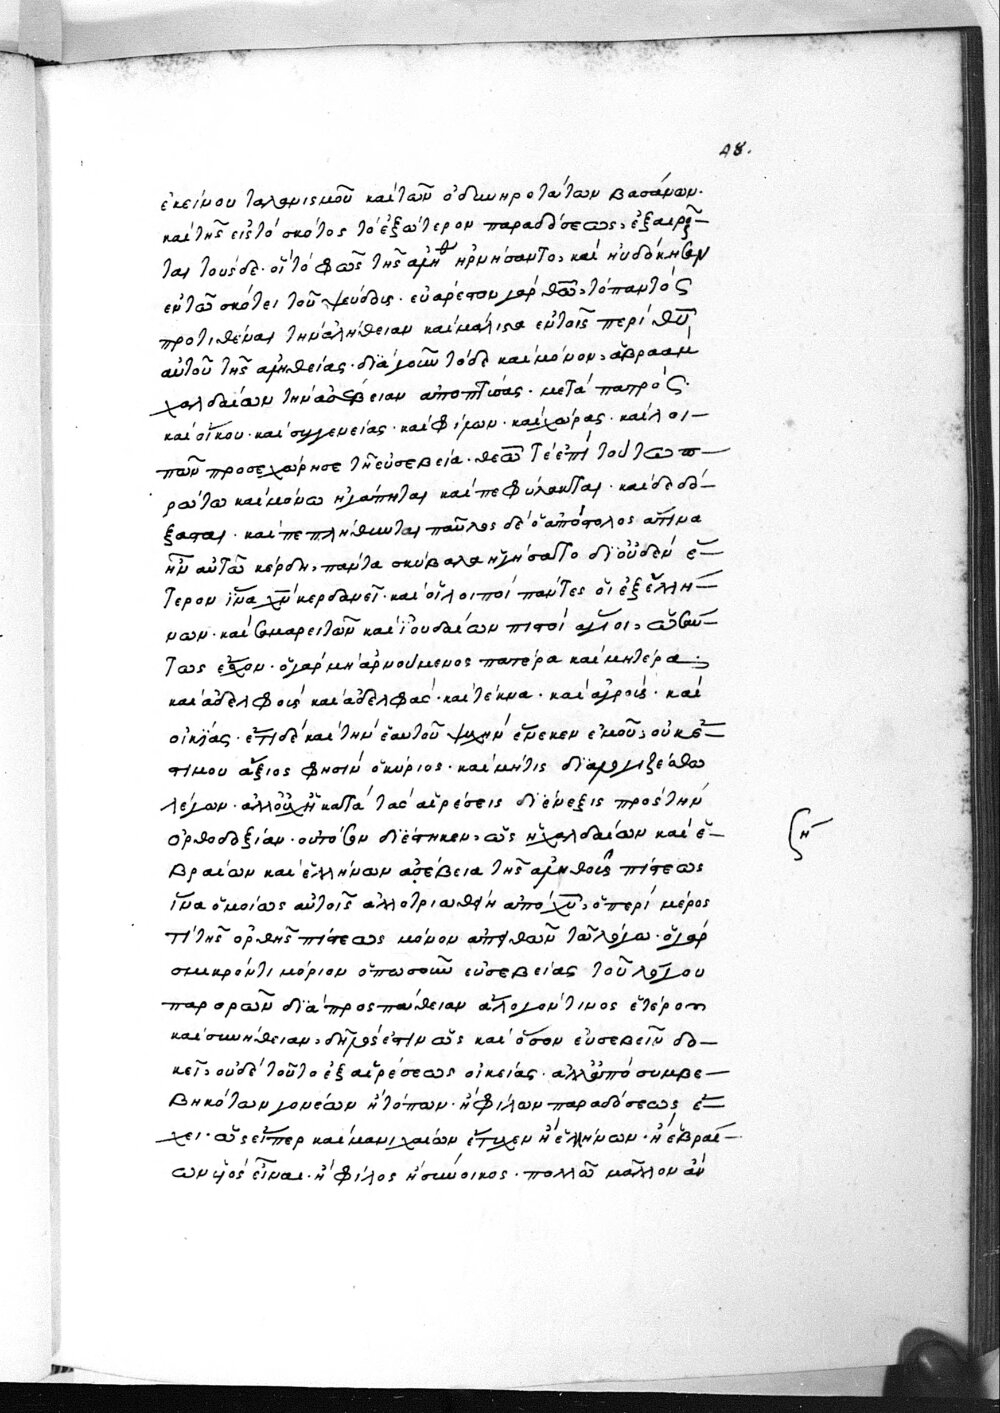 48.
ἐκείνου ταλανισμοῦ καὶ τῶν ὀδυνηροτάτων βασάνων.
καὶ τῆς εἰς τὸ σκότος τὸ ἐξώτερον παραδόσεως, ἐξαιρεῖ–
ται τούσδε. οἳ τὸ φῶς τῆς ἀληθ ἠρνήσαντο, καὶ ηὐδόκησαν
ἐν τῶ σκότει τοῦ ψεύδους. εὐάρεστον γὰρ θῶ, τὸ παντὸς
προτιθέναι τὴν ἀλήθειαν καὶ μάλιστα ἐν τοῖς περὶ θῦ
αὐτοῦ τῆς ἀληθείας. διὰ γοῦν τόδε καὶ μόνον, ἀβραὰμ
χαλδαίων τὴν ἀσέβειαν ἀποπτύσας. μετὰ πατρὸς.
καὶ οἴκου. καὶ συγγενείας. καὶ φίλων. καὶ χώρας. καὶ λοι–
πῶν προσεχώρησε τῆ εὐσεβεία. θεῶ τὲ ἐπὶ τούτω π–
ρώτω καὶ μόνω ἠγάπηται καὶ πεφύλακται. καὶ δεδό–
ξασται. καὶ πεπλήθυνται παῦλος δὲ ὁ ἀπόστολος ἅτινα
ἦν αὐτῶ κέρδη, πάντα σκύβαλα ἡγήσατο δι' οὐδὲν ἕ–
τερον ἵνα χν κερδανεῖ. καὶ οἱ λοιποὶ πάντες οἱ ἐξ ἑλλή–
νων. καὶ σαμαρειτῶν καὶ ἰουδαίων πιστοὶ ἅγιοι, ὡσαύ–
τως ἔσχον. ὁ γὰρ μὴ ἀρνούμενος πατέρα καὶ μητέρα.
καὶ ἀδελφοὺς καὶ ἀδελφὰς. καὶ τέκνα. καὶ ἀγροὺς. καὶ
οἰκίας. ἔτι δὲ καὶ τὴν ἑαυτοῦ ψυχὴν ἕνεκεν ἐμοῦ, οὐκ ἔ–
στι μου ἄξιος φησὶν ὁ κύριος. καὶ μήτις διαλογιζέσθω
λέγων. ἀλλ' οὐχ ἡ κατὰ τὰς αἱρέσεις διένεξις πρὸς τὴν
ὀρθοδοξίαν. οὐ τόσον διέστηκεν, ὡς ἡ χαλδαίων καὶ ἑ–
βραίων καὶ ἑλλήνων ἀσέβεια τῆς ἀληθοῦς πίστεως
ἵνα ὁμοίως αὐτοῖς ἀλλοτριωθῆ ἀπὸ χυ, ὁ περὶ μέρος
τὶ τῆς ὀρθῆς πίστεως μόνον ἀπιστῶν τῶ λόγω. ὁ γὰρ
σμικρόν τι μόριον ὁπωσοῦν εὐσεβείας τοῦ λόγου
παρορῶν διὰ προσπάθειαν ἄλογόν τινος ἑτέρου
καὶ συνήθειαν, δῆλός ἐστιν ὡς καὶ ὅσον εὐσεβεῖν δο–
κεῖ, οὐδὲ τοῦτο ἐξ αἱρέσεως οἰκείας. ἀλλ' ἀπὸ συμβε–
βηκότων γονέων ἢ τόπων. ἢ φίλων παραδόσεως ἔ–
χει. ὡς εἴπερ καὶ μανιχαίων ἔτυχεν ἢ ἑλλήνων. ἢ ἑβραί–
ων υἱὸς εἶναι. ἢ φίλος ἢ σύνοικος. πολλῶ μᾶλλον ἂν